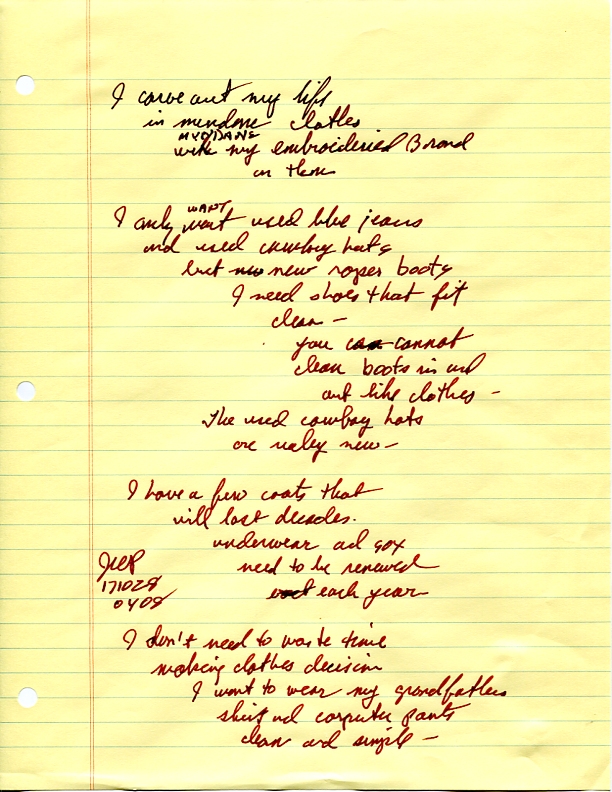 I carve out my life
in mundane clothes
MUNDANE
with my embroidered Brand
on them
WANT
I only want used blue jeans
and used cowboy hats
but new roper boots
I need shoes that fit
clean –
you cannot
clean boots in and
out like clothes –
The used cowboy hats
are really new –
I have a few coats that
will last decades.
underwear and sox
need to be renewed
each year
JWP
171028
0408
I don't need to waste time
making clothes decision
I want to wear my grandfathers
shirt and carpenter pants
clean and simple –